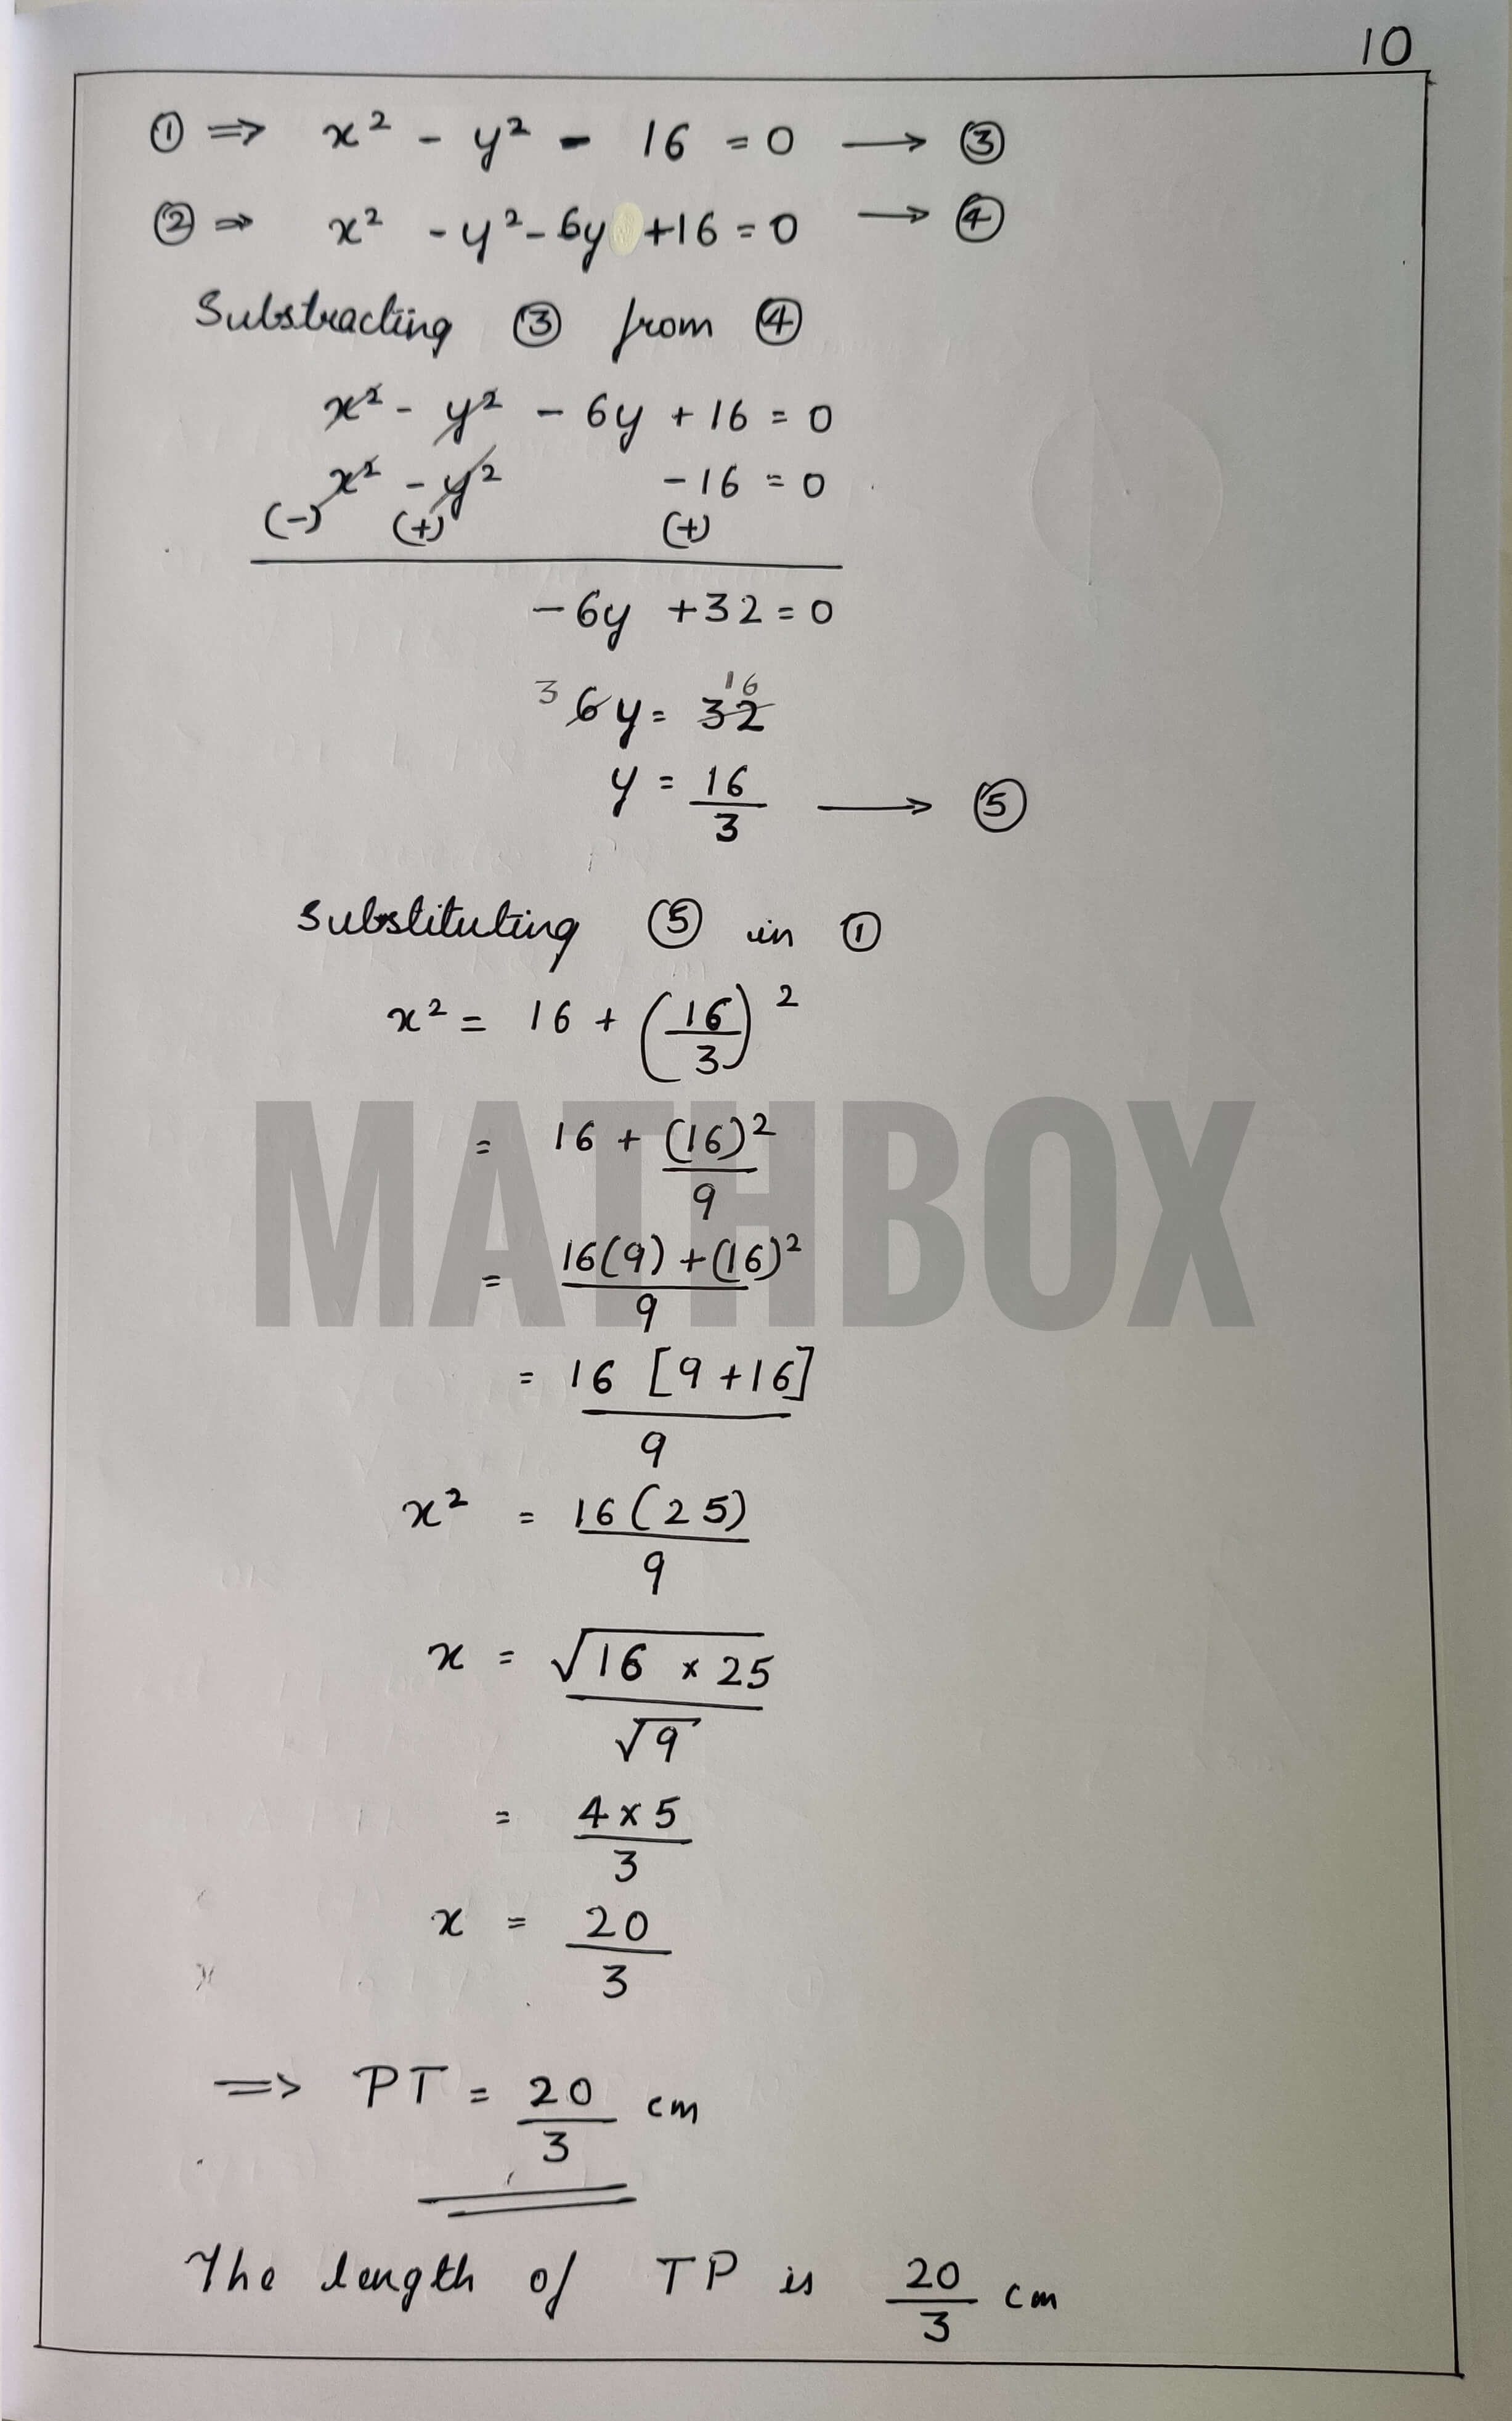 10
① ⇒ x² - y² - 16 = 0 → ③
② ⇒ x² - y² - 6y +16 = 0 → ④
Substracting ③ from ④
x² - y² - 6y + 16 = 0
x² - y² -16 = 0
(-) (+) (+)
-6y +32 = 0
3 6y = 32 16
y = 16/3 → ⑤
Substituting ⑤ in ①
x² = 16 + (16/3)²
= 16 + (16)²/9
MATHBOX
= 16(9) + (16)²/9
= 16 [9 +16]/9
x² = 16(25)/9
x = √16 × 25/√9
= 4 × 5/3
x = 20/3
⇒ PT = 20/3 cm
The length of TP is 20/3 cm